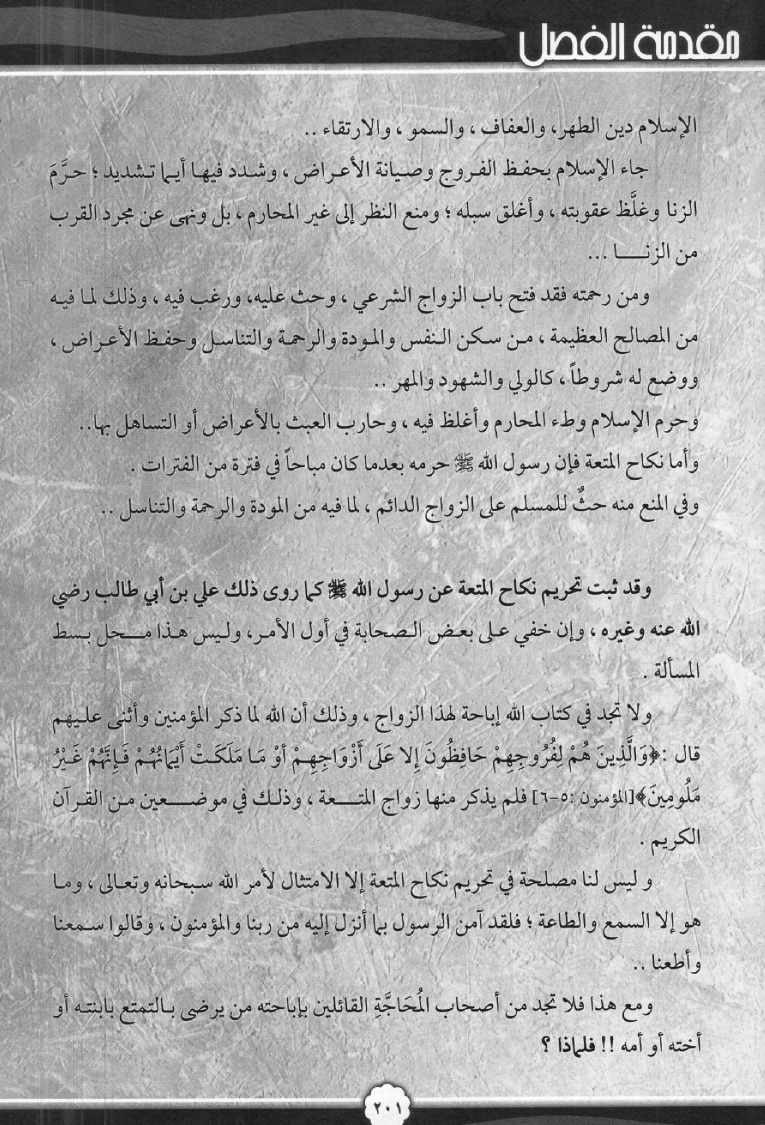 مقدمة الفصل
الإسلام دين الطهر، والعفاف ، والسمو ، والارتقاء ..
جاء الإسلام بحفظ الفروج وصيانة الأعراض ، وشدد فيها أيما تشديد ؛ حرَّمَ
الزنا وغلَّظ عقوبته ، وأغلق سبله ؛ ومنع النظر إلى غير المحارم ، بل ونهى عن مجرد القرب
من الزنـــا ...
ومن رحمته فقد فتح باب الزواج الشرعي ، وحث عليه، ورغب فيه ، وذلك لما فيه
من المصالح العظيمة ، من سكن النفس والمودة والرحمة والتناسل وحفظ الأعراض ،
ووضع له شروطاً ، كالولي والشهود والمهر ..
وحرم الإسلام وطء المحارم وأغلظ فيه ، وحارب العبث بالأعراض أو التساهل بها..
وأما نكاح المتعة فإن رسول الله ﷺ حرمه بعدما كان مباحاً في فترة من الفترات .
وفي المنع منه حثٌ للمسلم على الزواج الدائم ، لما فيه من المودة والرحمة والتناسل ..
وقد ثبت تحريم نكاح المتعة عن رسول الله ﷺ كما روى ذلك علي بن أبي طالب رضي
الله عنه وغيره ، وإن خفي على بعض الصحابة في أول الأمر، وليس هذا محل بسط
المسألة .
ولا تجد في كتاب الله إباحة لهذا الزواج ، وذلك أن الله لما ذكر المؤمنين وأثنى عليهم
قال :﴿وَالَّذِينَ هُمْ لِفُرُوجِهِمْ حَافِظُونَ إِلا عَلَى أَزْوَاجِهِمْ أوْ مَا مَلَكَتْ أَيْمَانُهُمْ فَإِنَّهُمْ غَيْرُ
مَلُومِينَ﴾[المؤمنون :٥-٦] فلم يذكر منها زواج المتعة ، وذلك في موضعين من القرآن
الكريم .
و ليس لنا مصلحة في تحريم نكاح المتعة إلا الامتثال لأمر الله سبحانه وتعالى ، وما
هو إلا السمع والطاعة ؛ فلقد آمن الرسول بما أنزل إليه من ربنا والمؤمنون ، وقالوا سمعنا
وأطعنا ..
ومع هذا فلا تجد من أصحاب المُحَاجَّةِ القائلين بإباحته من يرضى بالتمتع بابنته أو
أخته أو أمه !! فلماذا ؟
٢٠١